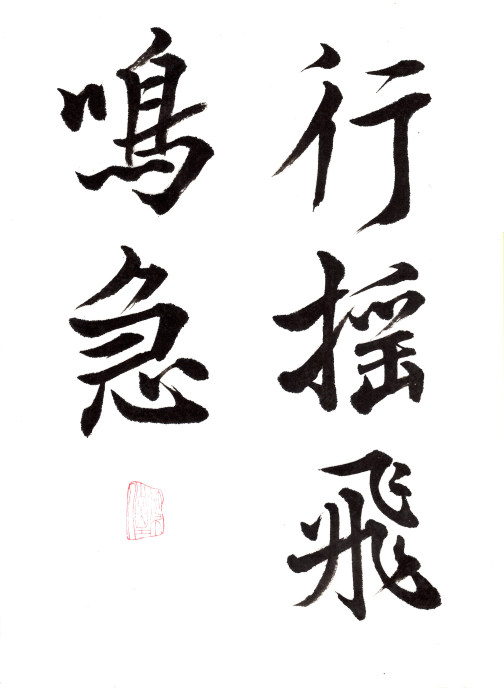 行揺飛
鳴急